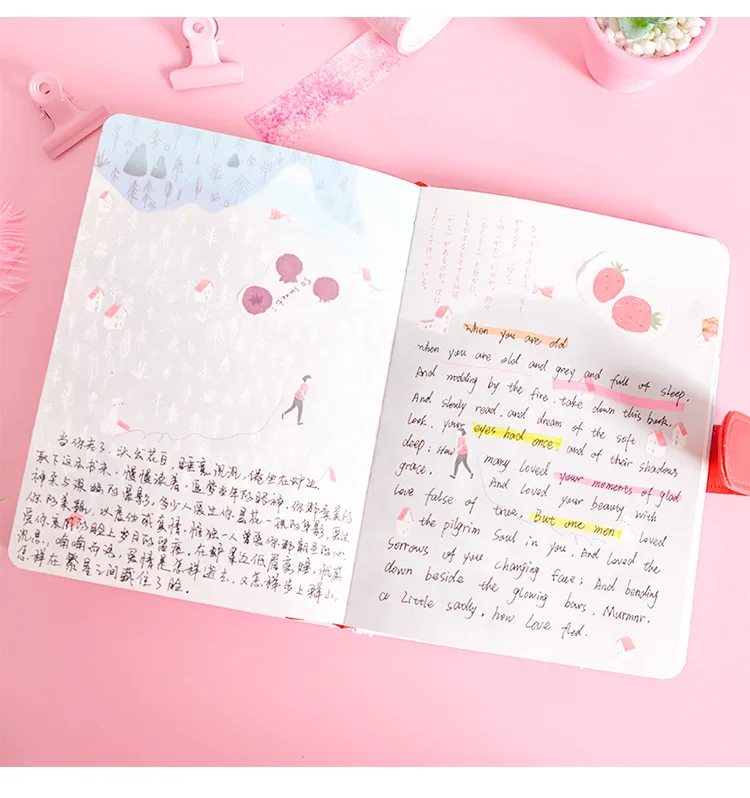 So sweet!
当你老了，头发花白，睡意沉沉，倦坐在炉边，
取下这本书来，慢慢读着，追梦当年的眼神，你那柔美的
神采与深幽的晕影，多少人爱过你昙花一现的身影，爱过
你的美貌，以虚伪或真情，惟独一人曾爱你那朝圣的心，
爱你哀戚的脸上岁月的留痕，在炉罩边低眉弯腰，忧戚
沉思，喃喃而语，爱情是怎样逝去，又怎样步上群山，
怎样在繁星之间藏住了脸。
when you are old
when you are old and grey and full of sleep.
And nodding by the fire. take down this book.
And slowly read. and dream of the soft
look. your eyes had once. and of their shadows
deep; How many loved your moments of glad
grace. And loved your beauty with
love false of true. But one men loved
the pilgrim Soul in you. And loved the
Sorrows of you changing face; And bending
down beside the glowing bars. Murmnr.
a Little sadly. how Love fled.